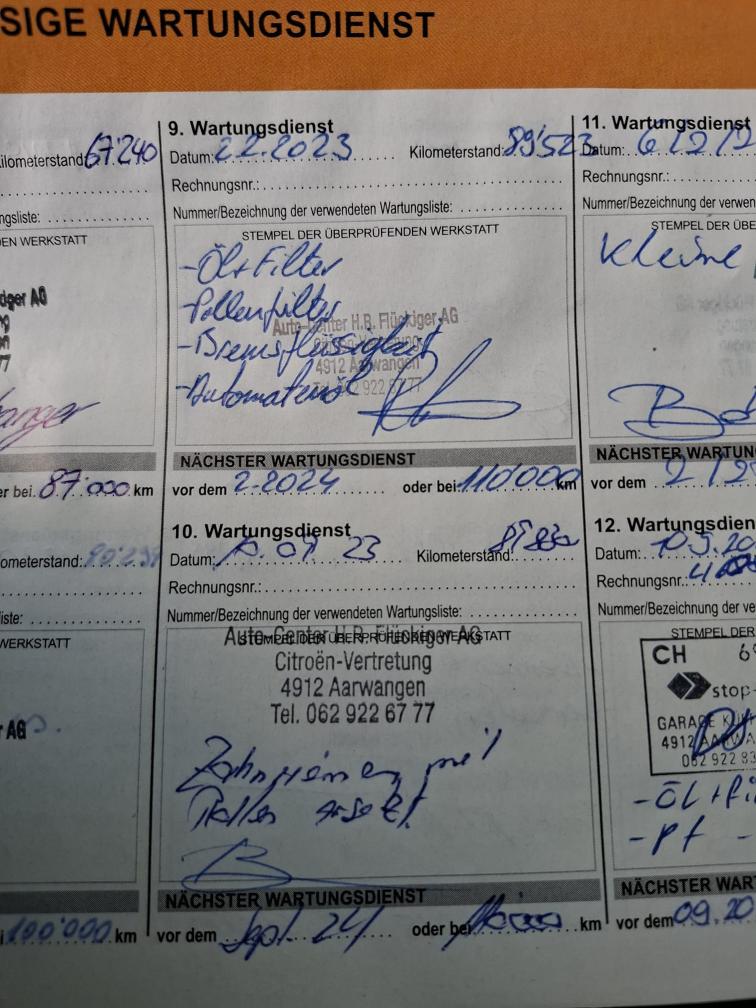 SIGE WARTUNGSDIENST
ilometerstand: 67'240
ngsliste:
EN WERKSTATT
dger AG
er bei 87'000 km
ometerstand:
iste:
WERKSTATT
r AG
100'000 km
9. Wartungsdienst
Datum: 2.2.2023 Kilometerstand: 89'523
Rechnungsnr.:
Nummer/Bezeichnung der verwendeten Wartungsliste:
STEMPEL DER ÜBERPRÜFENDEN WERKSTATT
- Öl + Filter
- Pollenfilter
Auto-Center H.B. Flückiger AG
- Bremsflüssigkeit
4912 Aarwangen
- Automatenöl
Tel. 062 922 67 77
NÄCHSTER WARTUNGSDIENST
vor dem 2.2024 oder bei 110'000 km
10. Wartungsdienst
Datum: 07 23 Kilometerstand:
Rechnungsnr.:
Nummer/Bezeichnung der verwendeten Wartungsliste:
STEMPEL DER ÜBERPRÜFENDEN WERKSTATT
Auto-Center H.B. Flückiger AG
Citroën-Vertretung
4912 Aarwangen
Tel. 062 922 67 77
Zahnriemen mit
Rollen ersetzt
NÄCHSTER WARTUNGSDIENST
vor dem Sept. 24 oder bei km
11. Wartungsdienst
Datum: 6/2/2
Rechnungsnr.:
Nummer/Bezeichnung der verwen
STEMPEL DER ÜBE
Kleine
NÄCHSTER WARTUN
vor dem 2/2
12. Wartungsdien
Datum: 10.5.20
Rechnungsnr.:
Nummer/Bezeichnung der ve
STEMPEL DER
CH 69
stop-
GARAGE
4912
062 922 83
- Öl + fi
- Pf -
NÄCHSTER WART
vor dem 09.20